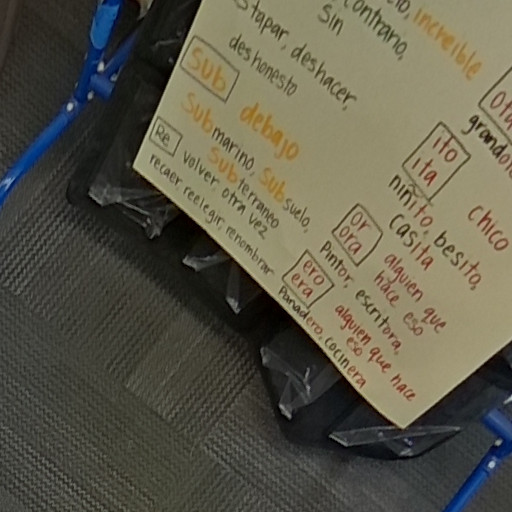 contrario, increíble
Sin
deshacer,
deshonesto
Sub
debajo
Submarino, Subsuelo,
Subterraneo
Re
volver, otra vez
recaer, reelegir, renombrar
ito
ita
chico
niñito, besito,
casita
or
ora
alguien que
hace eso
Pintor, escritora,
ero
era
alguien que hace
eso
Panadero, cocinera